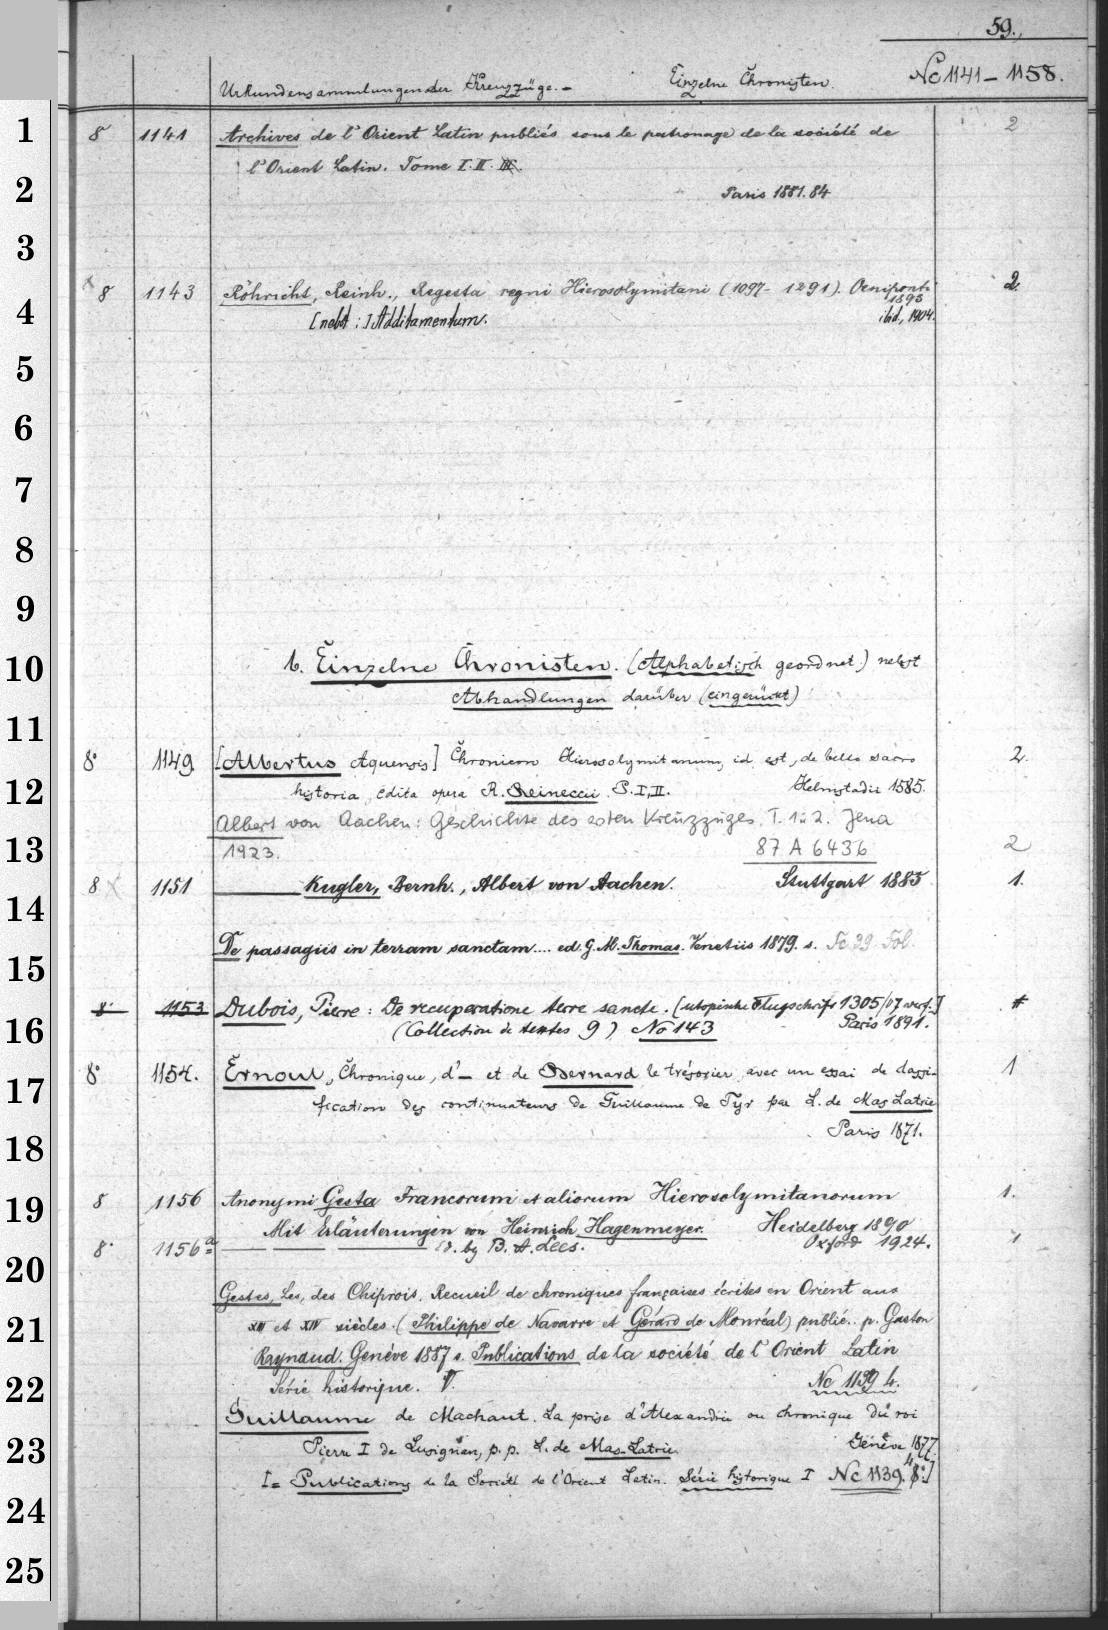 59.
Urkundensammlungen der Kreuzzüge. – Einzelne Chronisten. No 1141 – 1158.
8 1141 Archives de l'Orient Latin publiés sous le patronage de la société de 2
l'Orient Latin. Tome I. II.
Paris 1881. 84
8 1143 Röhricht, Reinh., Regesta regni Hierosolymitani (1097 – 1291). Oeniponti 2
1893
[nebst:] Additamentum. ibid, 1904.
b. Einzelne Chronisten. (Alphabetisch geordnet) nebst
Abhandlungen darüber (eingerückt)
8° 1149 [Albertus Aquensis] Chronicon Hierosolymitanum, id est, de bello sacro 2
historia, edita opera R. Reineccii. P. I, II. Helmstadii 1585.
Albert von Aachen: Geschichte des 1sten Kreuzzuges, T. 1 u 2. Jena
1923. 87 A 6436 2
8 1151 Kugler, Bernh., Albert von Aachen. Stuttgart 1885 1.
De passagiis in terram sanctam .... ed. G. M. Thomas. Venetiis 1879. s. Fc 29 Fol.
8° 1153 Dubois, Pierre: De recuperatione terre sancte. [utopische Flugschrift 1305/07 verf.]
(Collection de textes 9) No 143 Paris 1891.
8° 1154. Ernoul, Chronique, d'– et de Bernard le trésorier avec un essai de classi- 1
fication des continuateurs de Guillaume de Tyr par L. de Mas Latrie
Paris 1871.
8 1156 Anonymi Gesta Francorum et aliorum Hierosolymitanorum 1.
Mit Erläuterungen von Heinrich Hagenmeyer. Heidelberg 1890
8° 1156a Ed. by B. A. Lees. Oxford 1924. 1
Gestes, Les, des Chiprois. Recueil de chroniques françaises écrites en Orient aux
XIII et XIV siècles. (Philippe de Navarre et Gérard de Monréal) publié. p. Gaston
Raynaud. Genève 1887 s. Publications de la société de l'Orient Latin
Série historique. V. No 1139 4.
Guillaume de Machaut. La prise d'Alexandrie ou chronique du roi
Pierre I de Lusignan, p. p. L. de Mas-Latrie. Genève 1877.
[= Publications de la Société de l'Orient Latin. Série historique I No 1139. 8°]